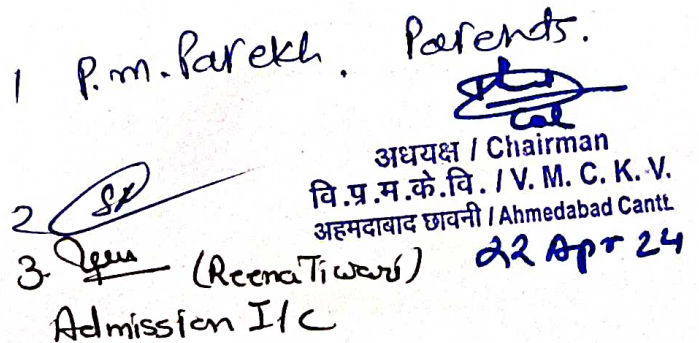 1 P.m. Parekh. Parents.
Col
अधयक्ष / Chairman
वि.प्र.म.के.वि. / V. M. C. K. V.
अहमदाबाद छावनी / Ahmedabad Cantt.
22 Apr 24
2
3. (Reena Tiwari)
Admission I/C